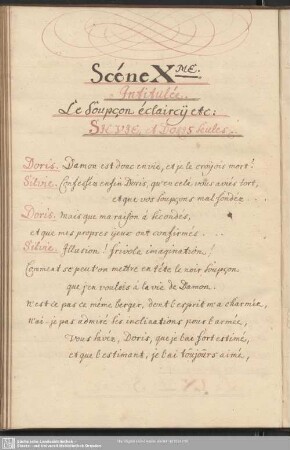 Scéne X^ME.
Intitulée.
Le Soupçon éclairçÿ etc:
Doris. Damon est donc en vie, et je le croÿois mort!
Silvie. Confessés enfin Doris, qu'en cela, vous aviés tort,
et que vos soupçons mal fondez
Doris. Mais que ma raison a secondés,
et que mes propres yeux ont confirmés
Silvie. Illusion! frivole imagination!
Comment se peut on mettre en tête le noir soupçon
que j'en voulois à la vie de Damon.
N'est ce pas ce même berger, dont l'esprit m'a charmée,
N'ai-je pas admiré les inclinations pour l'armée,
Vous savéz, Doris, que je l'ai fort estimé,
et que l'estimant, je l'ai toujours aimé,